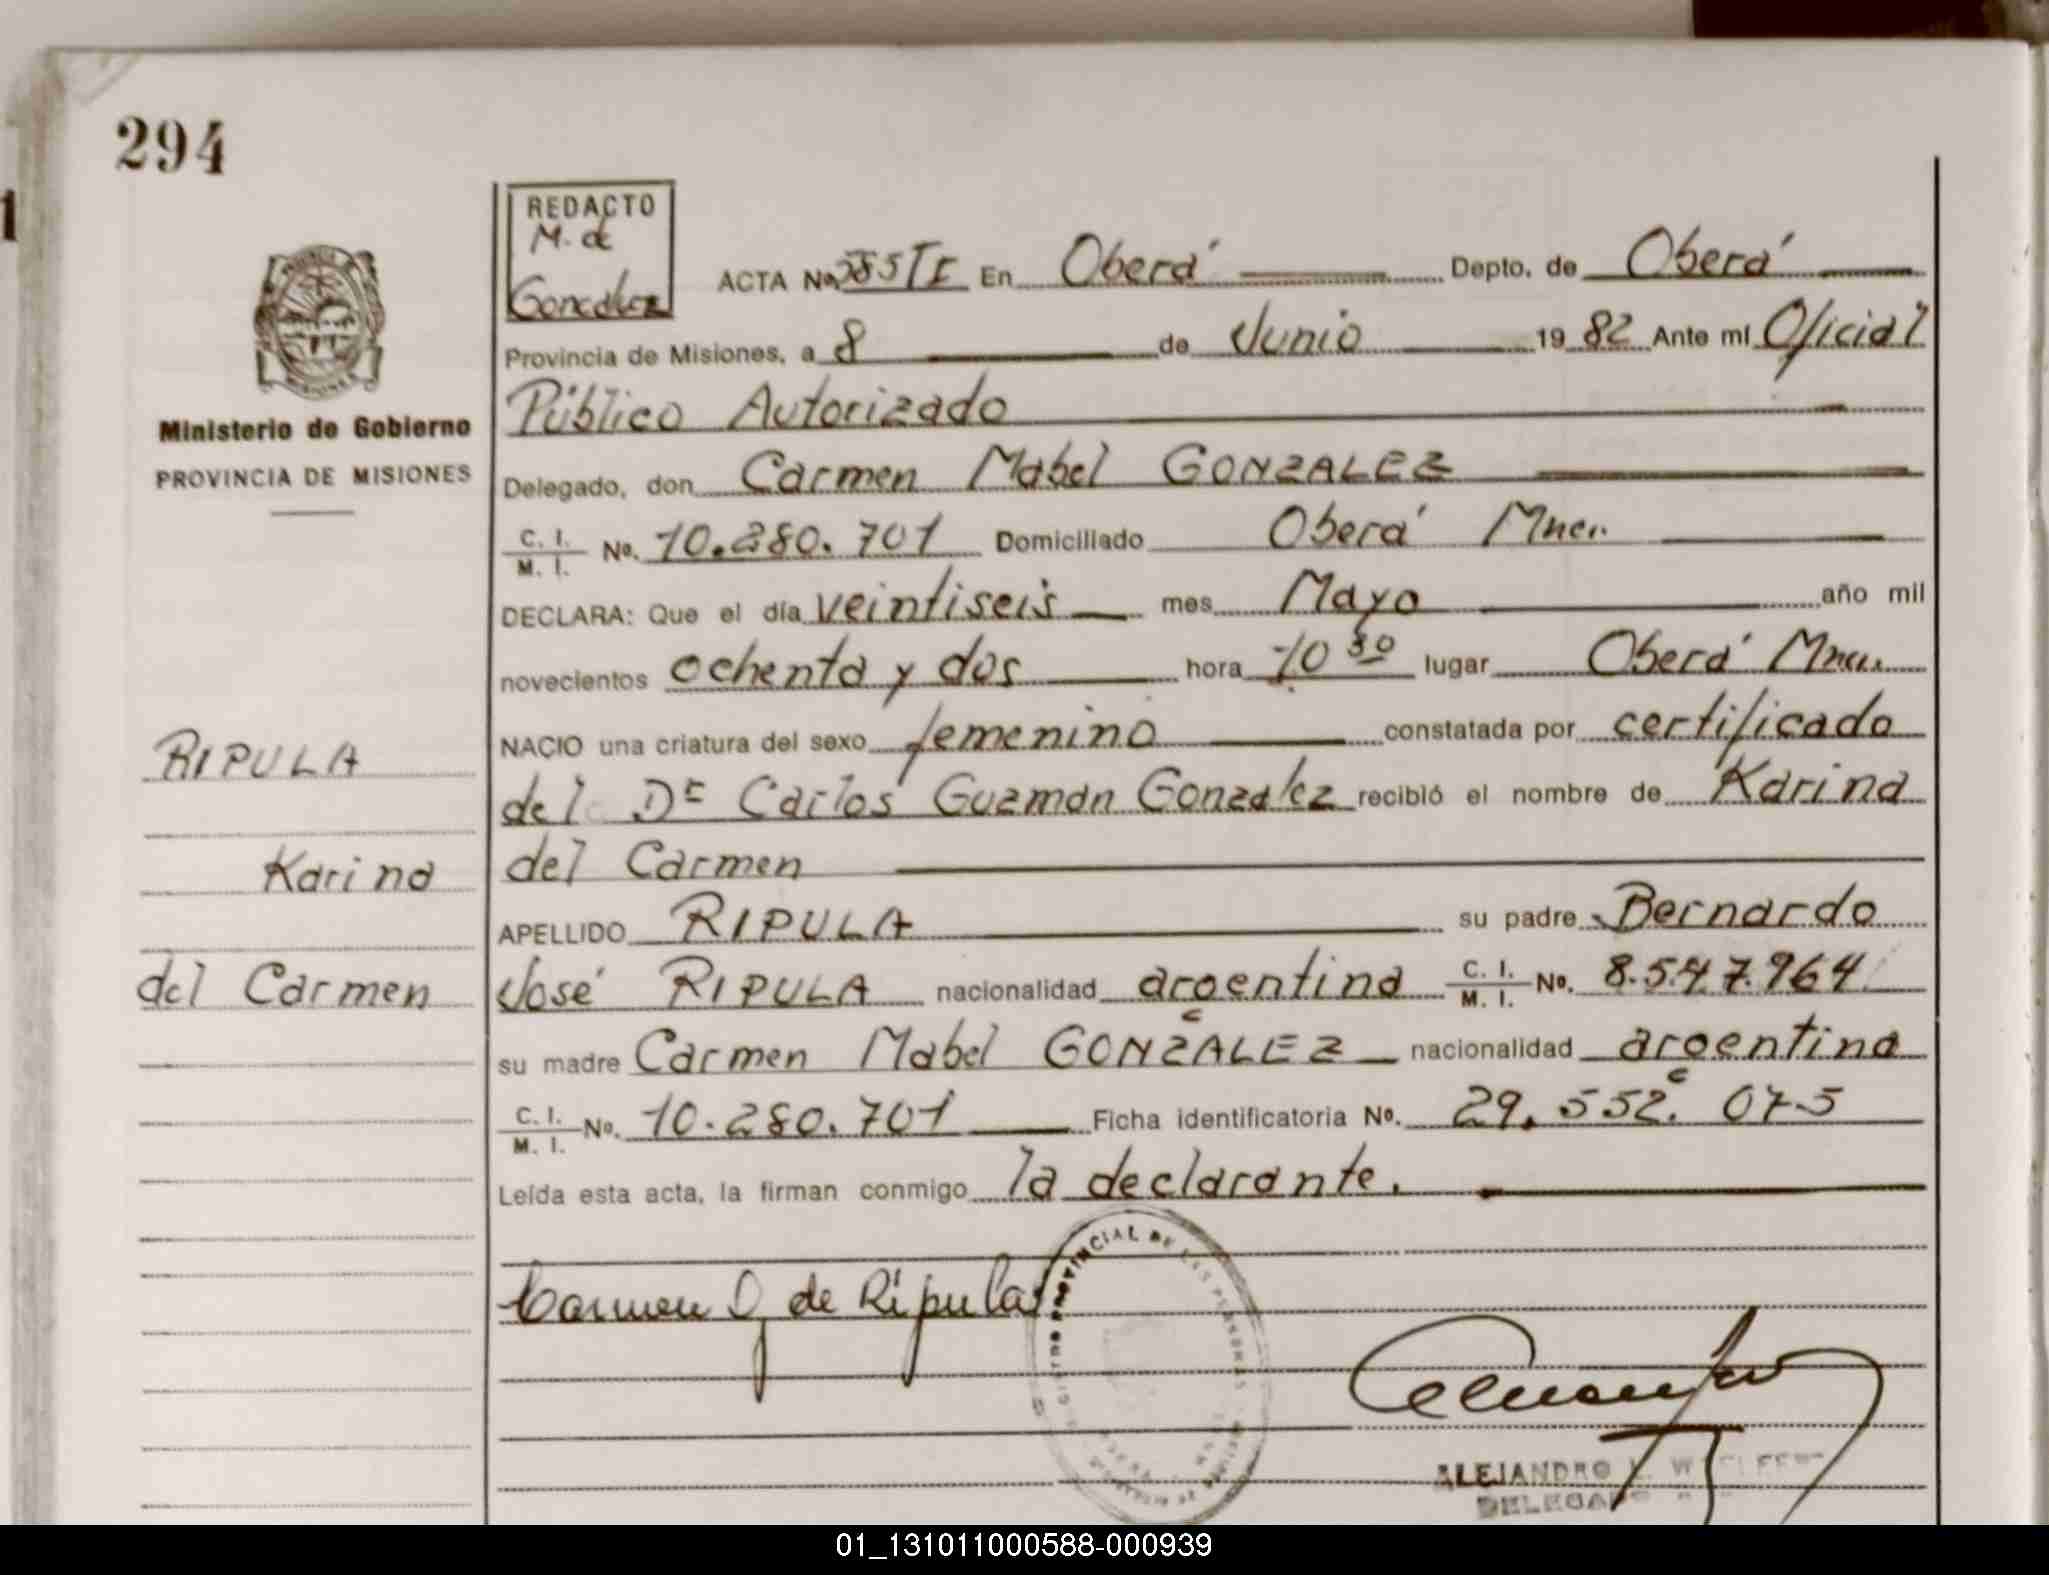 294
1
REDACTO
M. de
Gonzalez
ACTA No. 585 T I En Oberá Depto. de Oberá
Provincia de Misiones, a 8 de Junio 1982 Ante mí Oficial
Público Autorizado
Ministerio de Gobierno
PROVINCIA DE MISIONES
Delegado, don Carmen Mabel GONZALEZ
C. I. / M. I. No. 10.280.701 Domiciliado Oberá Mnes.
DECLARA: Que el día veintiseis mes Mayo año mil
novecientos ochenta y dos hora 10 30 lugar Oberá Mnes.
NACIO una criatura del sexo femenino constatada por certificado
del Dr Carlos Guzmán Gonzalez recibió el nombre de Karina
del Carmen
APELLIDO RIPULA su padre Bernardo
José RIPULA nacionalidad argentina C. I. / M. I. No. 8.547.964
su madre Carmen Mabel GONZALEZ nacionalidad argentina
C. I. / M. I. No. 10.280.701 Ficha identificatoria No. 29.552.075
Leída esta acta, la firman conmigo la declarante.
RIPULA
Karina
del Carmen
Carmen G de Ripula
PROVINCIAL DE LAS PERSONAS
ALEJANDRO
DELEGADO
MISIONES
01_131011000588-000939